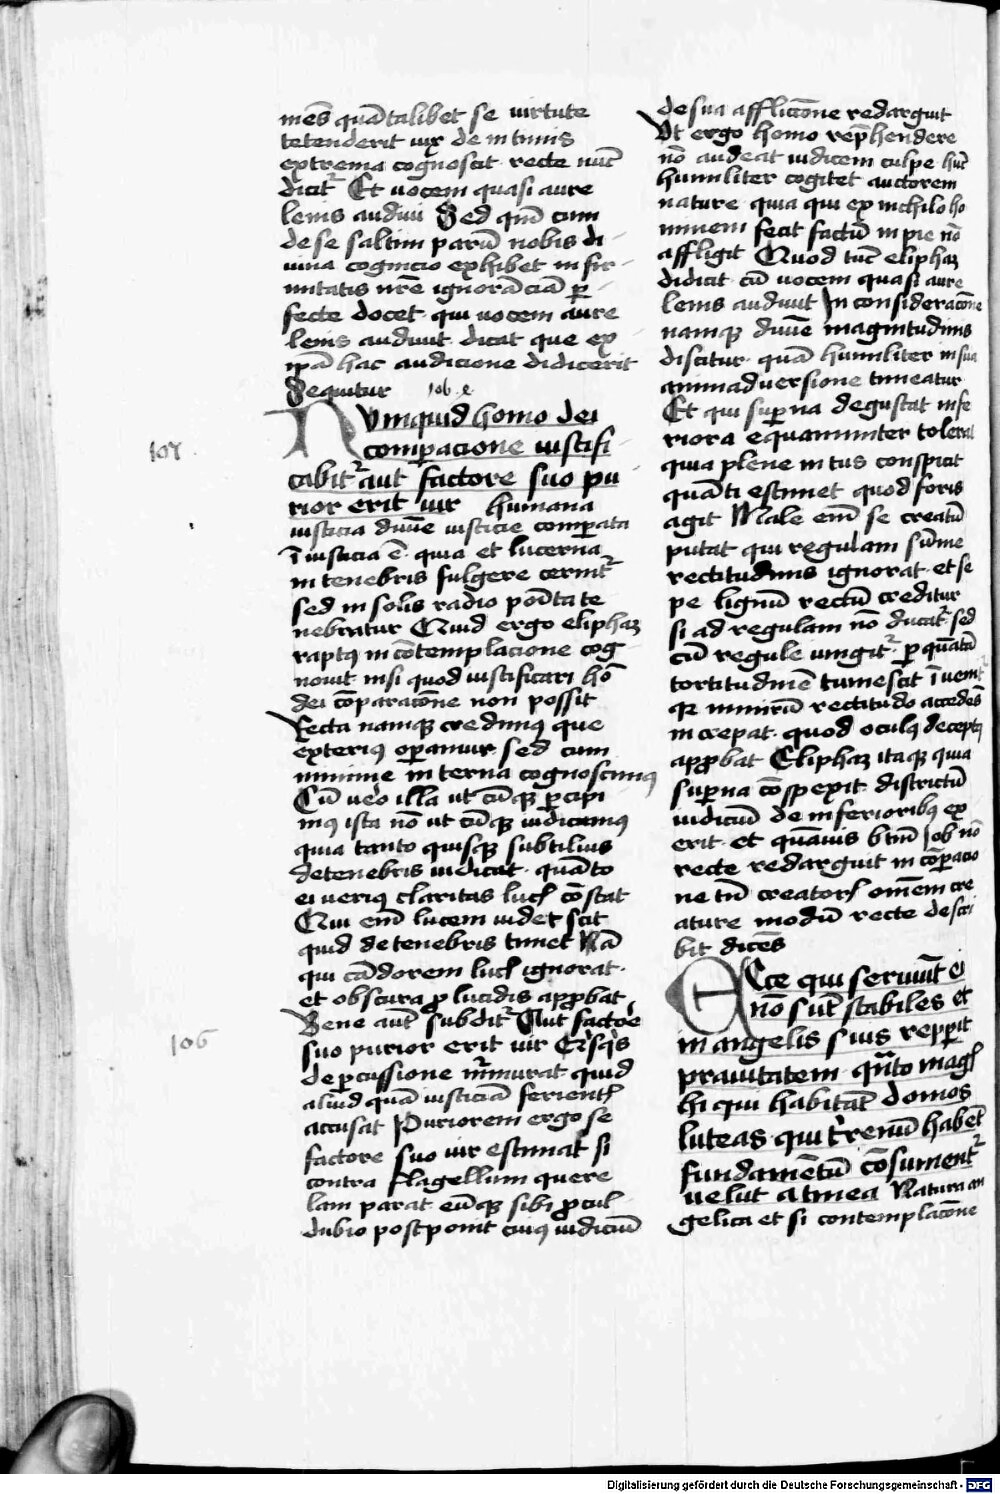 mēs quātalibet se uirtute
tetenderit uix de intimis
extrema cognoscit recte nūc
dicit᷑ Et uocem quasi aure
lenis audiui Sed qm̄ cum
de se saltim parū nobis di
uina cognicio exhibet in fir
mitatis nrē ignorāciā ꝑ
fecte docet qui uocem aure
lenis audiuit dicat que ex
ip̄a hac audicione didicerit
Sequitur iob
Numquid homo dei
comꝑacione iustifi
cabit᷑ aut factore suo pu
rior erit uir humana
iusticia diuīe iusticie comꝑata
īiusticia ē quia et lucerna
in tenebris fulgere cernit᷑
sed in solis radio poīta te
nebratur Quid ergo eliphaz
raptꝰ in cōtemplacione cog
nouit nisi quod iustificari hō
dei cōparacōne non possit
Recta namqꝫ credimꝰ que
exteriꝰ oꝑamur sed cum
minime interna cognoscimꝰ
Cū uēo illa ut cūqꝫ ꝑcipi
mꝰ ista nō ut cūqꝫ iudicamꝰ
quia tanto quisqꝫ subtilius
de tenebris iudicat quāto
ei ueriꝰ claritas lucꝭ cōstat
Qui em̄ lucem uidet scit
quid de tenebris timet Nā
qui cādorem lucꝭ ignorat
et obscura ꝓ lucidis apꝓbat
Bene aut̄ subdit᷑ Aut factoē
suo purior erit uir Qisqis
de ꝑcussione m᷑murat quid
aliud quā iusticiā ferientꝭ
accusat Puriorem ergo se
factore suo uir estimat si
contra flagellum quere
lam parat eūqꝫ sibi ꝓcul
dubio postponit cuiꝰ iudiciū
de sua afflictōne redarguit
Vt ergo homo rep̄hendere
nō audeat iudicem culpe hūc
humiliter cogitet auctorem
nature quia qui ex nichilo ho
minem fecit factū in pie nō
affligit Quod tūc eliphaz
didicit cū uocem quasi aure
lenis audiuit In consideracōne
namqꝫ diuīe magnitudinis
discitur quā humiliter in sua
animaduersione timeatur
Et qui suꝑna degustat infe
riora equanimiter tolerat
quia plene intus conspicit
quāti estimet quod foris
agit Male em̄ se creatū
putat qui regulam sūme
rectitudinis ignorat et se
pe lignū rectū creditur
si ad regulam nō ducat᷑ sed
cū regule iungit᷑ ꝑ quātā
tortitudinē tumescit īuenit᷑
qꝛ nimirū rectitudo accedēs
increpat quod oculꝰ deceptꝰ
apꝓbat Eliphaz itaqꝫ quia
suꝑna cōspexit districtū
iudiciū de inferioribꝰ ex
erit et quāuis btm̄ Iob nō
recte redarguit in cōꝑacio
ne tn̄ creatorꝭ omēm cre
ature modū recte descri
bit dicēs
Ecce qui seruiūt ei
nō sūt stabiles et
in angelis suis repꝑit
prauitatem qn̄to magꝭ
hi qui habitāt domos
luteas qui t᷑renū habēt
fundamētū cōsument᷑
uelut a tinea Natura an
gelica et si contemplacōne
107
106
Digitalisierung gefördert durch die Deutsche Forschungsgemeinschaft - DFG